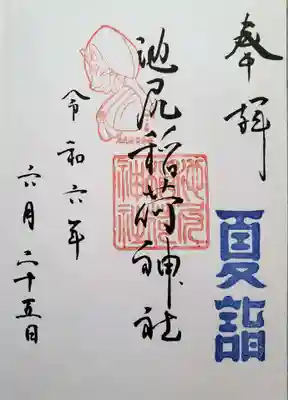 奉拝
夏詣
池尻稲荷神社
池尻
稲荷
神社
令和六年
六月二十五日